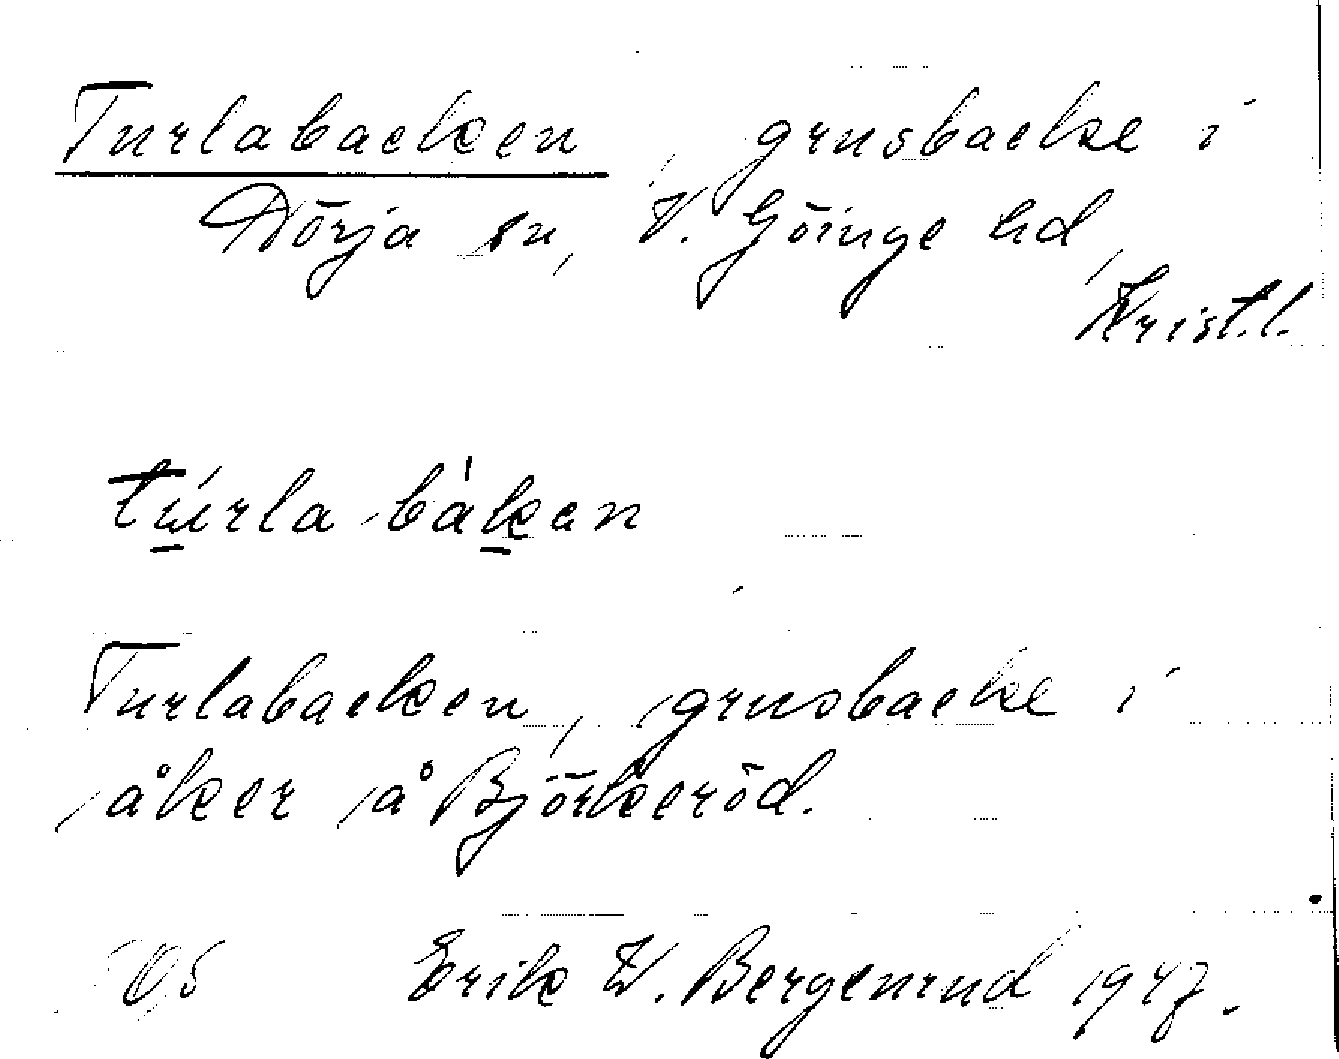 Turlabacken, grusbacke i
Nörja sn, V. Göinge hd,
Krist.l.
túrla bàkan
Turlabacken, grusbacke i
åker å Björkeröd.
Erik W. Bergenrud 1947.